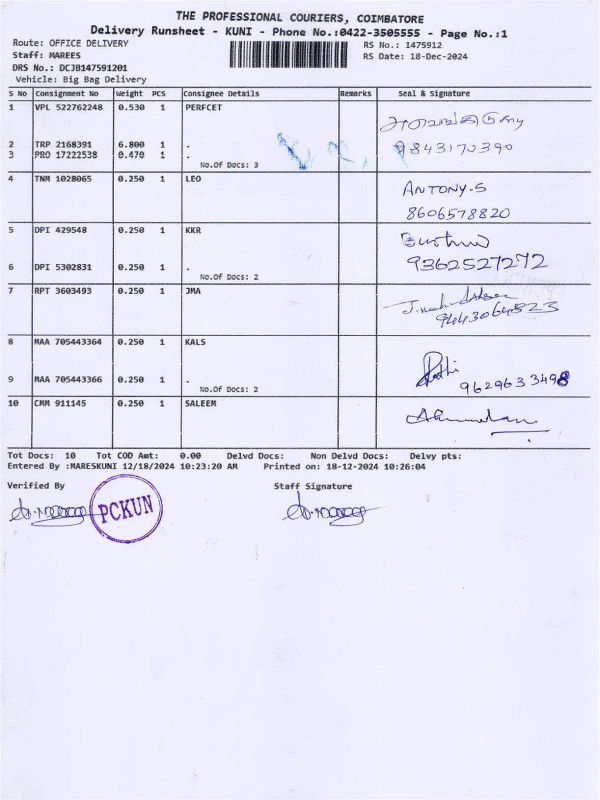 THE PROFESSIONAL COURIERS, COIMBATORE
Delivery Runsheet - KUNI - Phone No.:0422-3505555 - Page No.:1
Route: OFFICE DELIVERY RS No.: 1475912
Staff: MAREES RS Date: 18-Dec-2024
DRS No.: DCJB147591201
Vehicle: Big Bag Delivery
S No Consignment No Weight PCS Consignee Details Remarks Seal & Signature
1 VPL 522762248 0.530 1 PERFCET
2 TRP 2168391 6.800 1 . 9843170390
3 PRO 17222538 0.470 1 .
No.Of Docs: 3
4 TNM 1028065 0.250 1 LEO ANTONY-S
8606578820
5 DPI 429548 0.250 1 KKR
6 DPI 5302831 0.250 1 . 9362527272
No.Of Docs: 2
7 RPT 3603493 0.250 1 JMA
9443064823
8 MAA 705443364 0.250 1 KALS
9 MAA 705443366 0.250 1 . 9629633498
No.Of Docs: 2
10 CMM 911145 0.250 1 SALEEM
Tot Docs: 10 Tot COD Amt: 0.00 Delvd Docs: Non Delvd Docs: Delvy pts:
Entered By :MARESKUNI 12/18/2024 10:23:20 AM Printed on: 18-12-2024 10:26:04
Verified By Staff Signature
PCKUN